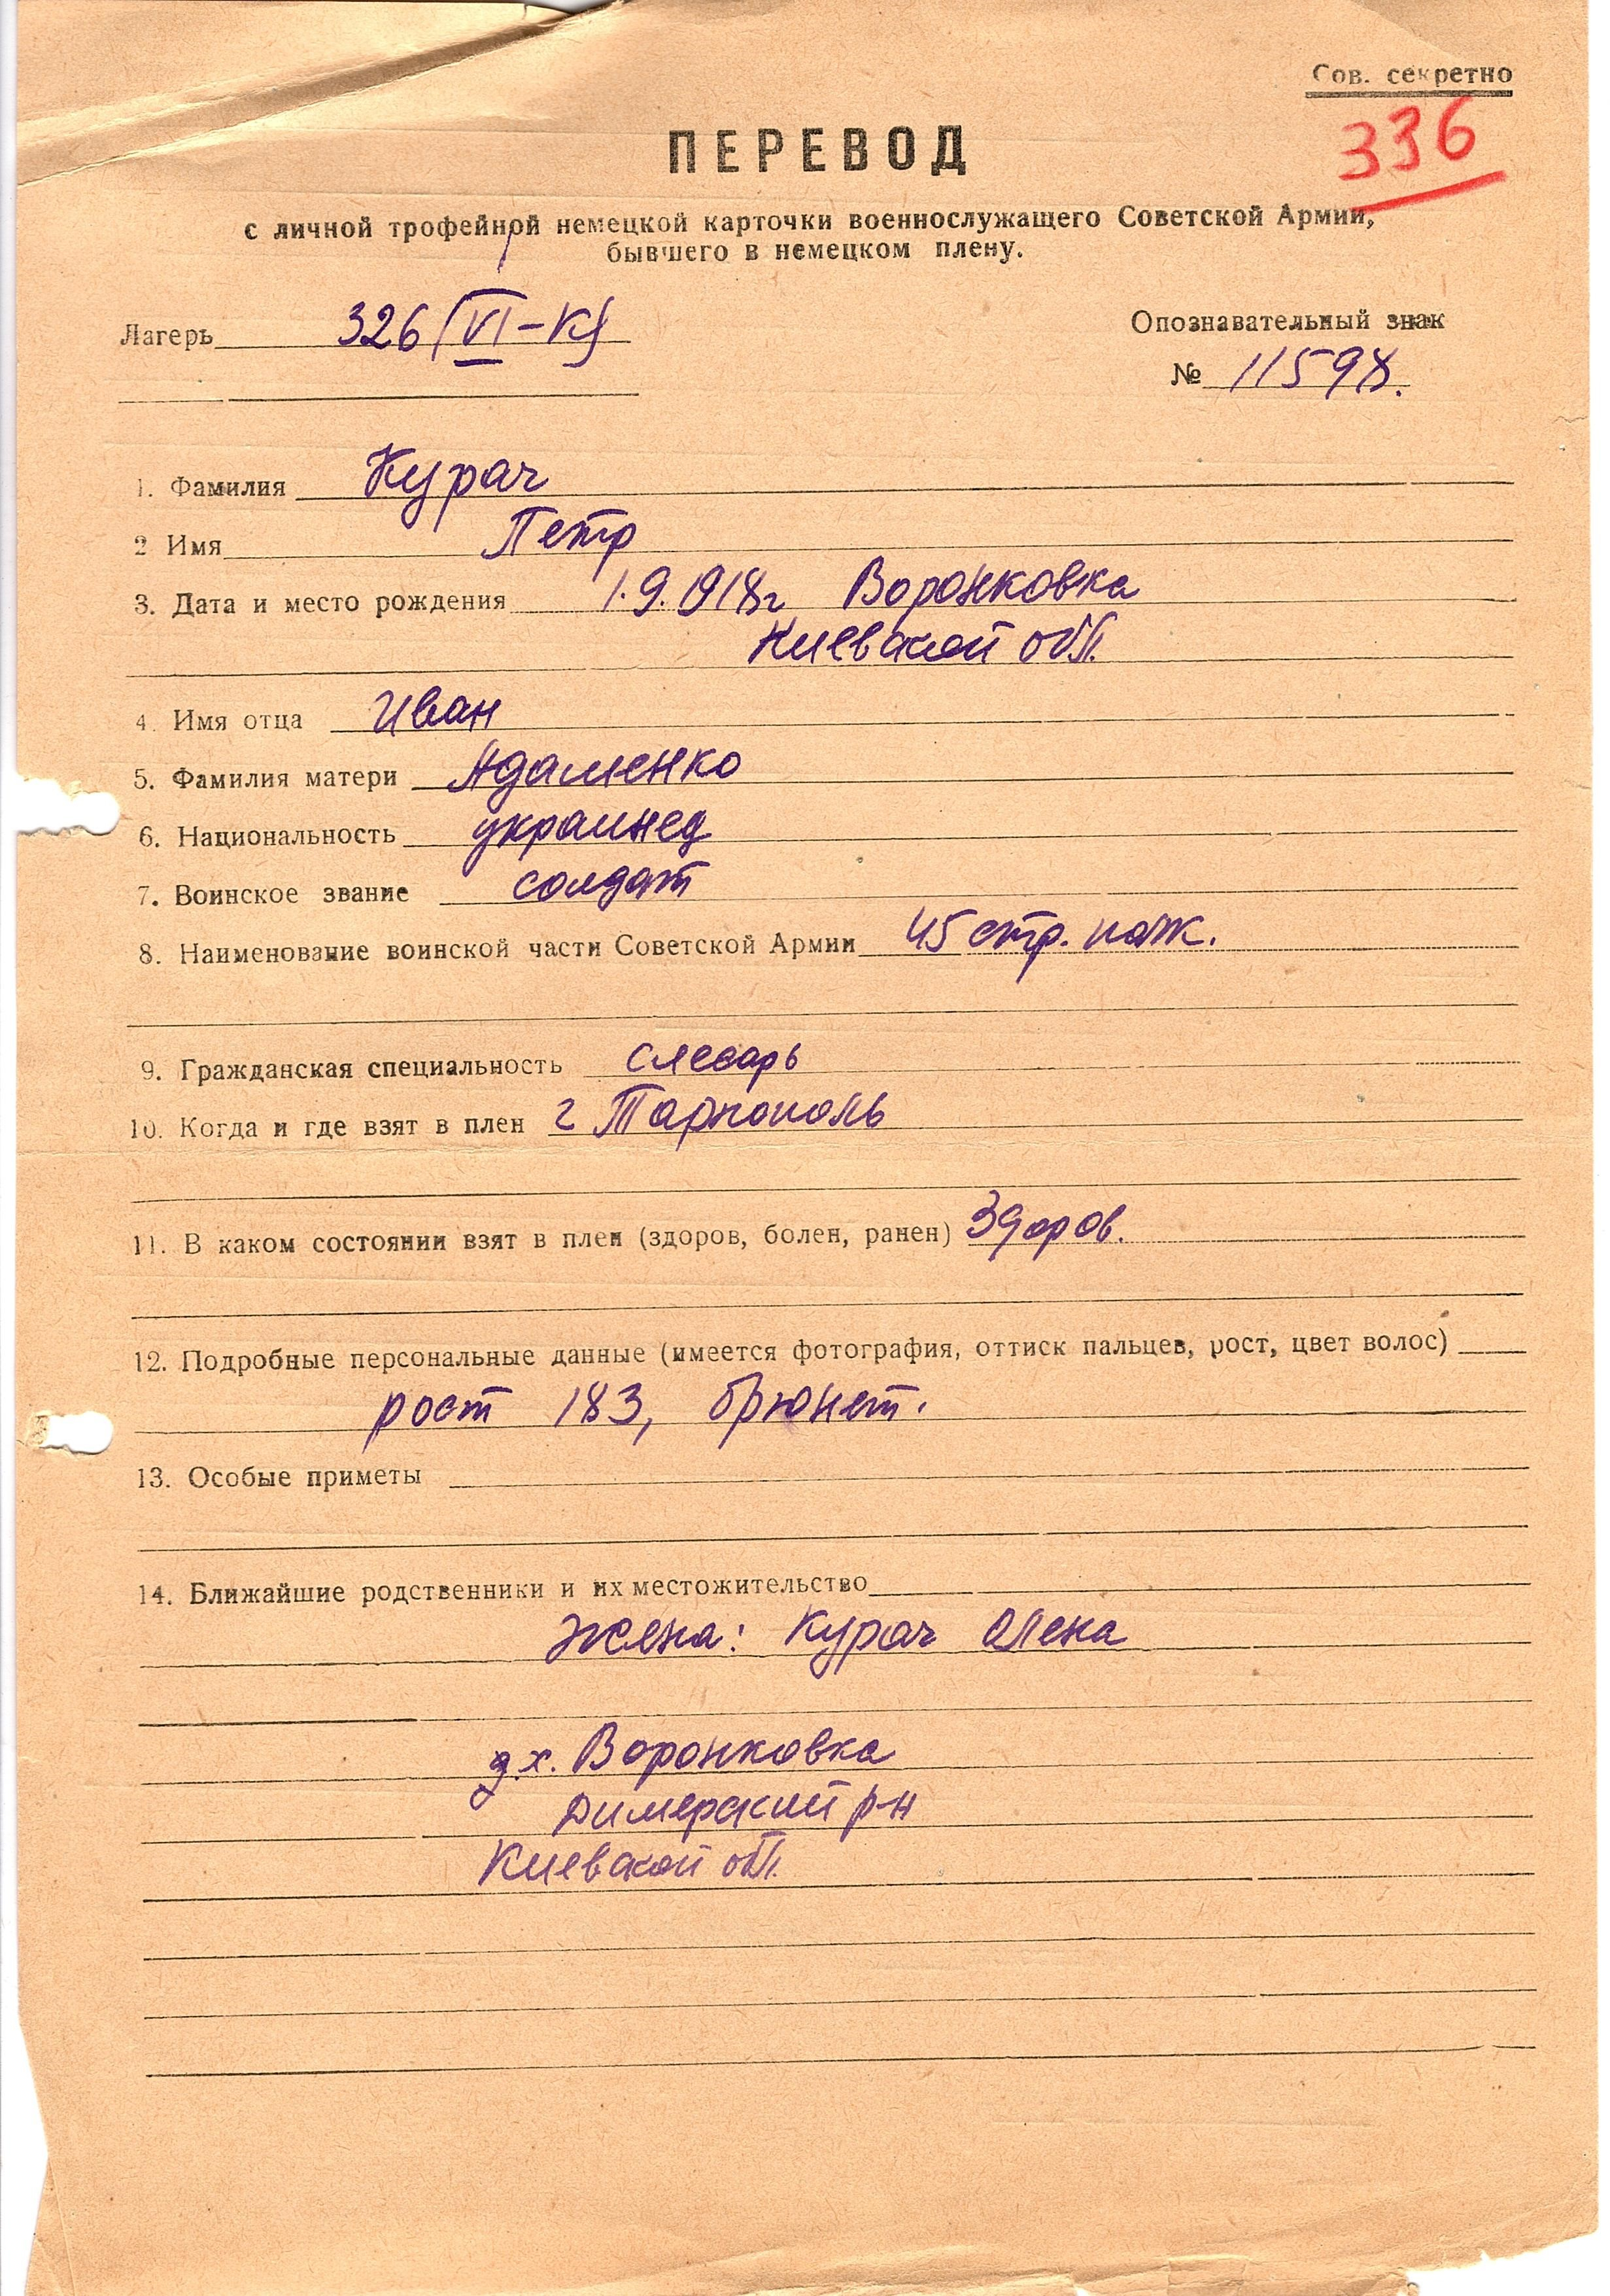 Сов. секретно
336
ПЕРЕВОД
с личной трофейной немецкой карточки военнослужащего Советской Армии,
бывшего в немецком плену.
Лагерь 326 (VI-К)
Опознавательный знак
№ 11598.
1. Фамилия Курач
2 Имя Петр
3. Дата и место рождения 1.9.1918г Воронковка
Киевской обл.
4. Имя отца Иван
5. Фамилия матери Адаменко
6. Национальность украинец
7. Воинское звание солдат
8. Наименование воинской части Советской Армии 45 стр. полк.
9. Гражданская специальность слесарь
10. Когда и где взят в плен г Тарнополь
11. В каком состоянии взят в плен (здоров, болен, ранен) Здоров.
12. Подробные персональные данные (имеется фотография, оттиск пальцев, рост, цвет волос)
рост 183, брюнет.
13. Особые приметы
14. Ближайшие родственники и их местожительство
Жена: Курач Олена
д.х. Воронковка
Димерский р-н
Киевской обл.